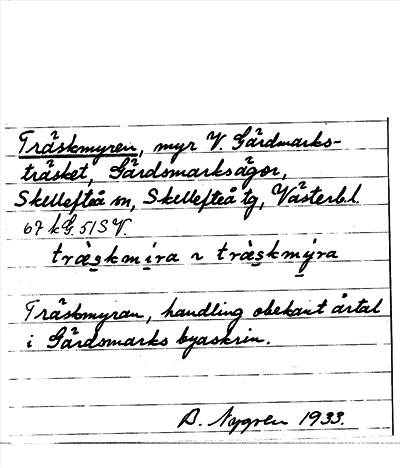 Träskmyren, myr V. Gärdmarks-
träsket, Gärdsmarksägor,
Skellefteå sn, Skellefteå tg, Västerb.l.
67 kG. 51SV.
træ̀skmíra ~ træ̀skmýra
Träskmyran, handling obekant årtal
i Gärdsmarks byaskrin.
B. Nygren 1933.